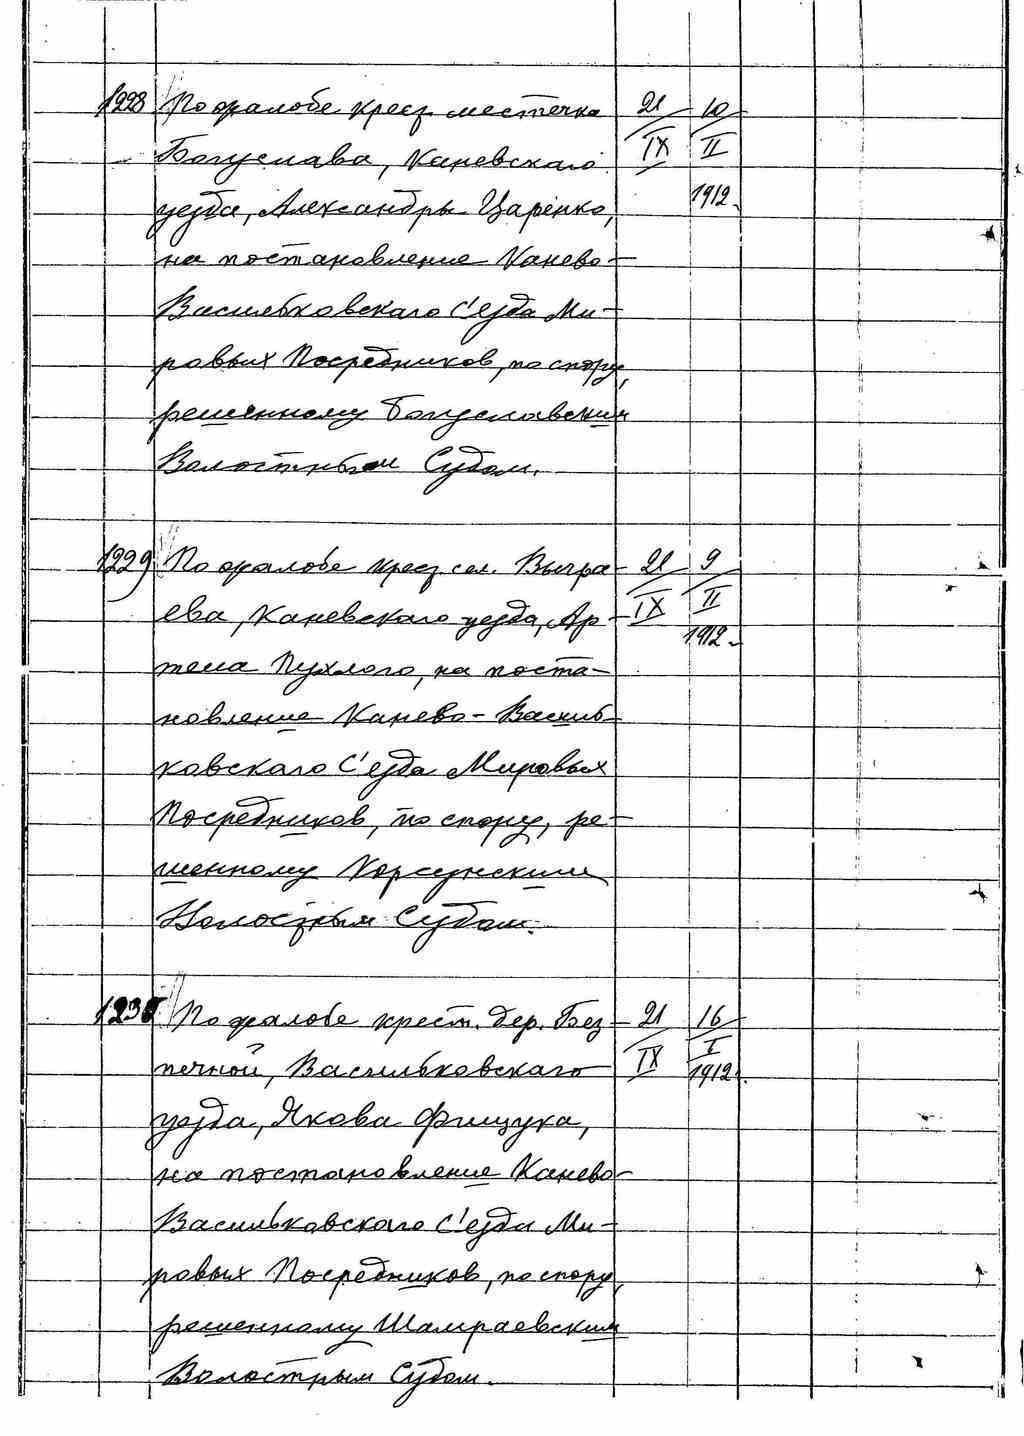 1228 По жалобе крест. местечка 21 10
Богуслава, Каневскаго IX II
уезда, Александры Царенко, 1912.
на постановление Канево-
Васильковскаго С'езда Ми-
ровых Посредников, по спору,
решенному Богуславским
Волостным Судом.
1229 По жалобе крест. сел. Выгра- 21 9
ева, Каневскаго уезда, Ар- IX II
тема Пухлого, на поста- 1912.
новление Канево-Василь-
ковскаго С'езда Мировых
Посредников, по спору, ре-
шенному Корсунским
Волостным Судом.
1230 По жалобе крест. дер. Без- 21 16
печной, Васильковскаго IX I 1912.
уезда, Якова Фищука,
на постановление Канево-
Васильковскаго С'езда Ми-
ровых Посредников, по спору,
решенному Шамраевским
Волостным Судом.